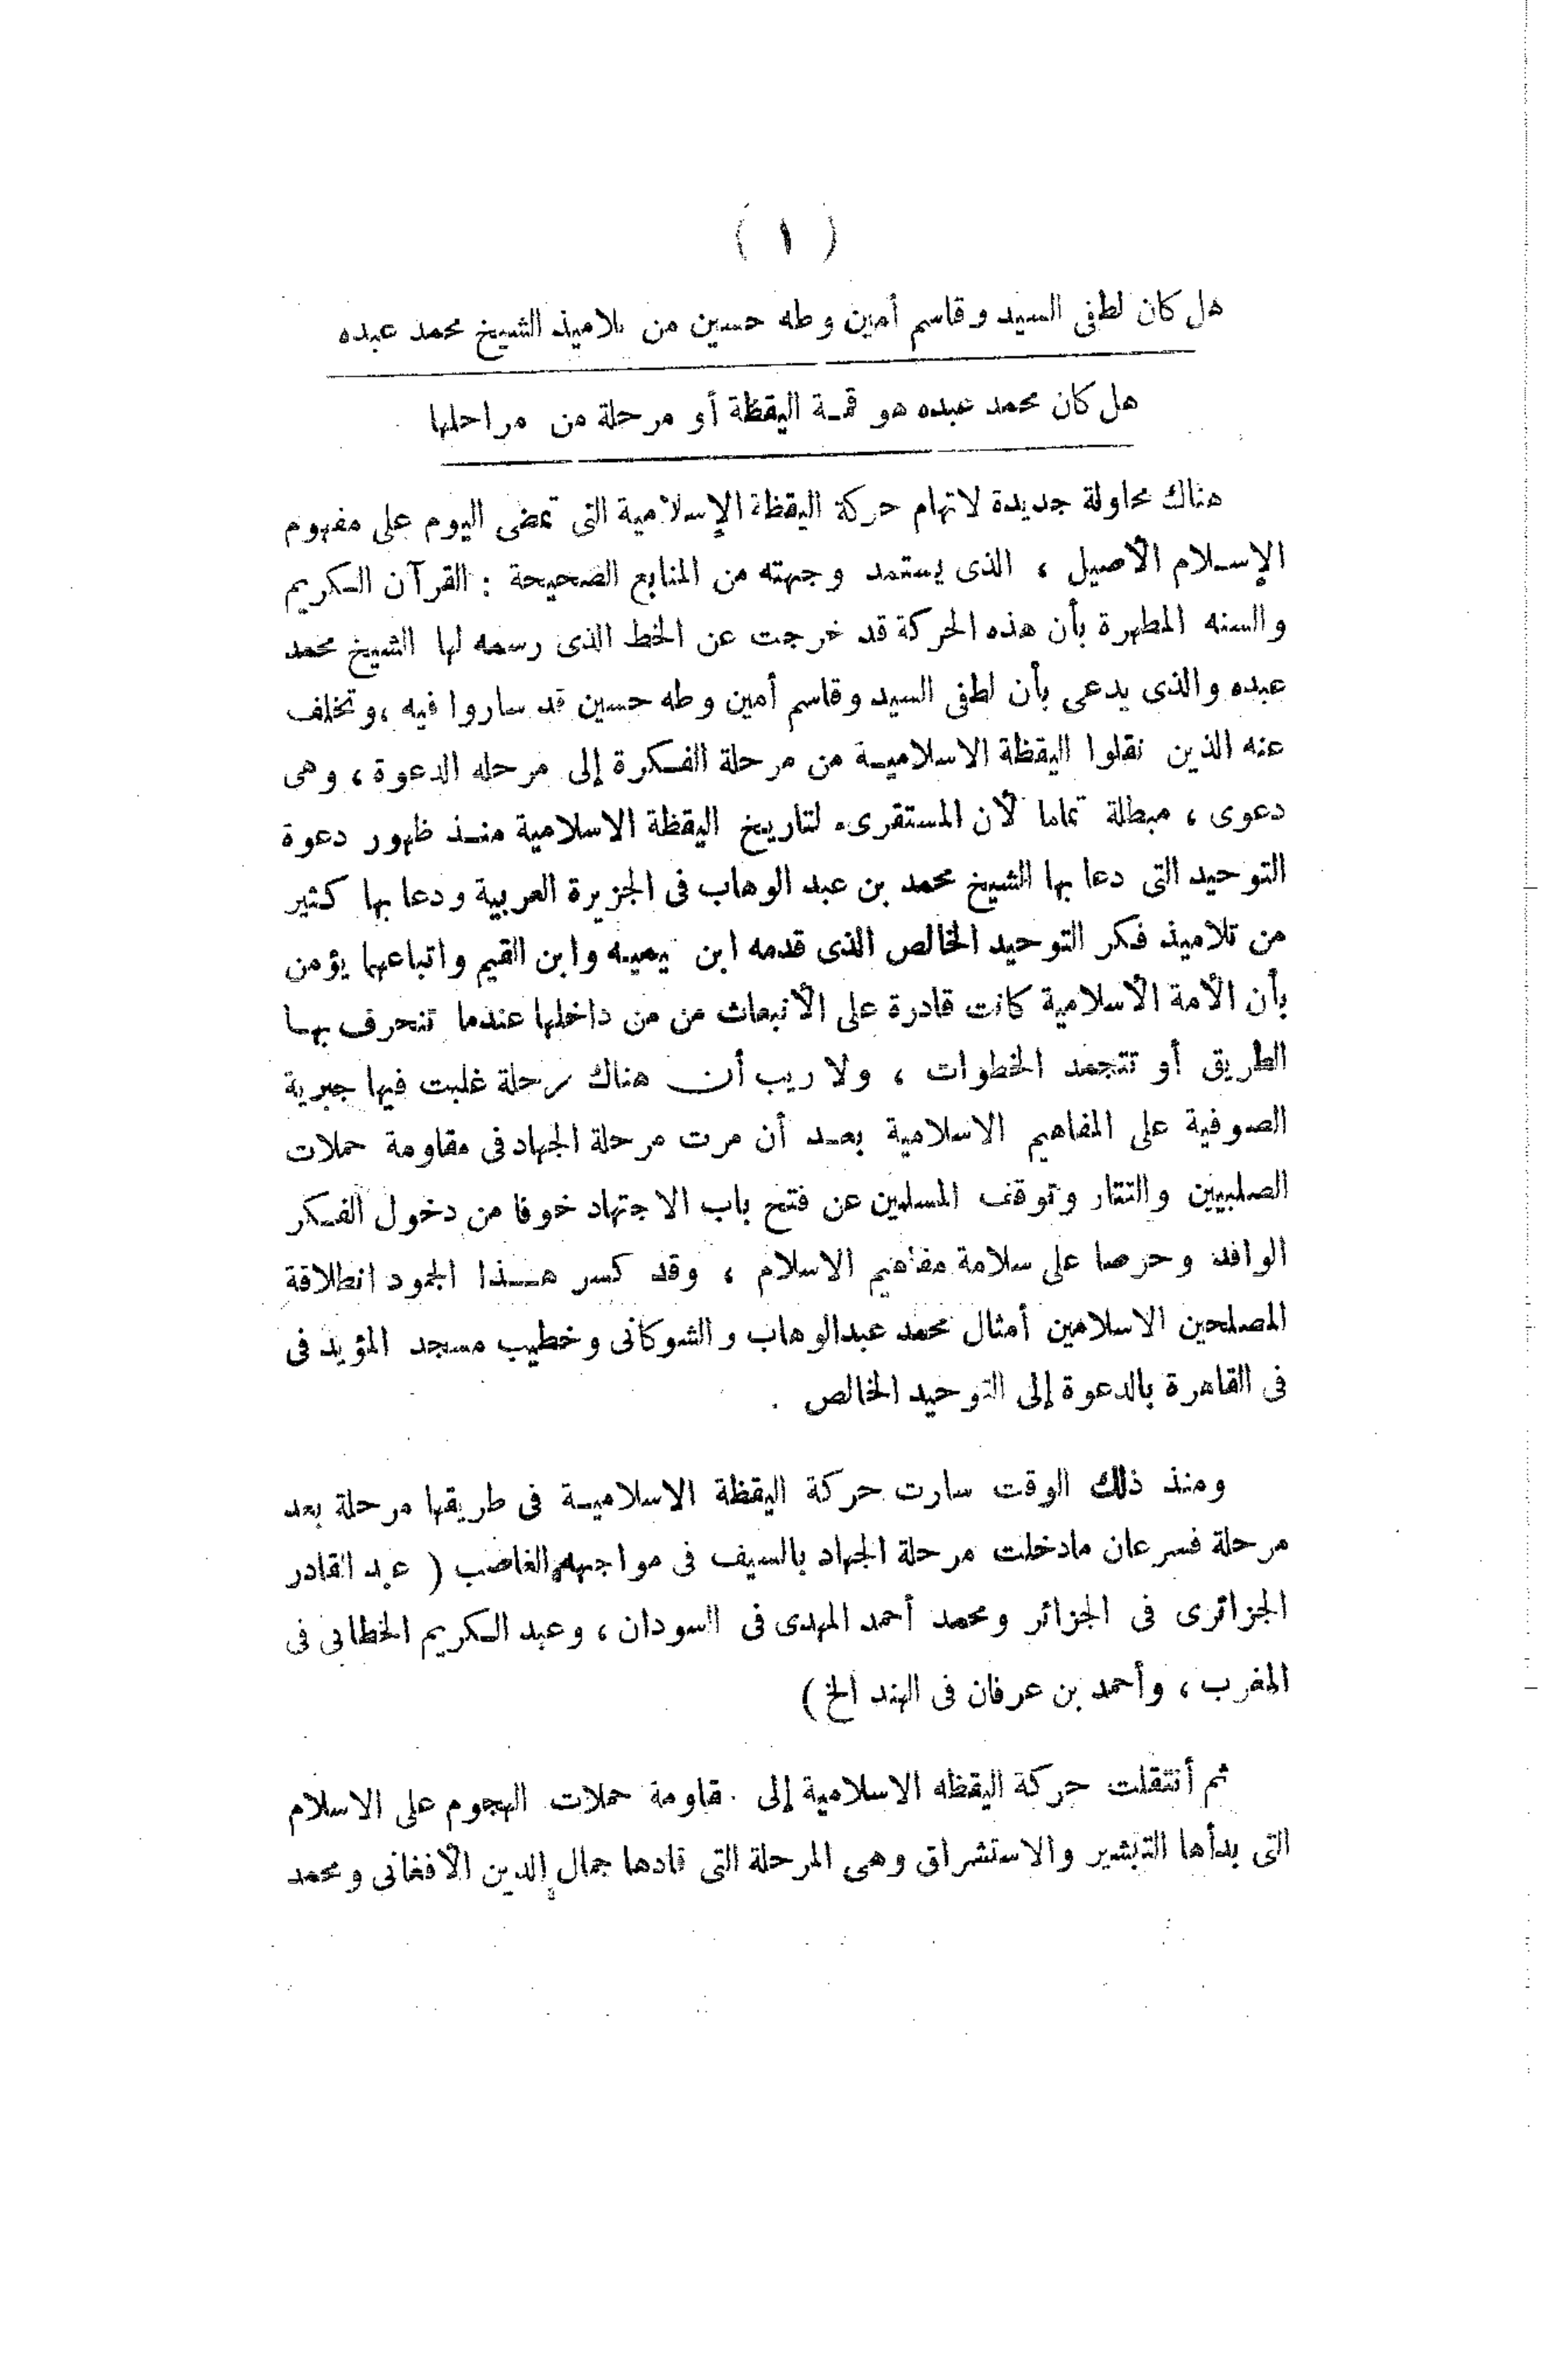 ( ١ )
هل كان لطفى السيد وقاسم أمين وطه حسين من تلاميذ الشيخ محمد عبده
هل كان محمد عبده هو قمة اليقظة أو مرحلة من مراحلها
هناك محاولة جديدة لاتهام حركة اليقظة الإسلامية التى تمضى اليوم على مفهوم
الإسلام الأصيل ، الذى يستمد وجهته من المنابع الصحيحة : القرآن الكريم
والسنه المطهرة بأن هذه الحركة قد خرجت عن الخط الذى رسمه لها الشيخ محمد
عبده والذى يدعى بأن لطفى السيد وقاسم أمين وطه حسين قد ساروا فيه ، وتخلف
عنه الذين نقلوا اليقظة الاسلامية من مرحلة الفكرة إلى مرحله الدعوة ، وهى
دعوى ، مبطلة تماما لأن المستقرىء لتاريخ اليقظة الاسلامية منذ ظهور دعوة
التوحيد التى دعا بها الشيخ محمد بن عبد الوهاب فى الجزيرة العربية ودعا بها كثير
من تلاميذ فكر التوحيد الخالص الذى قدمه ابن تيميه وابن القيم واتباعهما يؤمن
بأن الأمة الأسلامية كانت قادرة على الأنبعاث من من داخلها عندما تنحرف بها
الطريق أو تتجمد الخطوات ، ولا ريب أن هناك مرحلة غلبت فيها جبرية
الصوفية على المفاهيم الاسلامية بعد أن مرت مرحلة الجهاد فى مقاومة حملات
الصلبيين والتتار وتوقف المسلمين عن فتح باب الاجتهاد خوفا من دخول الفكر
الوافد وحرصا على سلامة مفاهيم الاسلام ، وقد كسر هذا الجمود انطلاقة
المصلحين الاسلامين أمثال محمد عبدالوهاب والشوكانى وخطيب مسجد المؤيد فى
فى القاهرة بالدعوة إلى التوحيد الخالص .
ومنذ ذلك الوقت سارت حركة اليقظة الاسلامية فى طريقها مرحلة بعد
مرحلة فسرعان مادخلت مرحلة الجهاد بالسيف فى مواجهه الغاصب ( عبد القادر
الجزائرى فى الجزائر ومحمد أحمد المهدى فى السودان ، وعبد الكريم الخطابى فى
المغرب ، وأحمد بن عرفان فى الهند الخ )
ثم أنتقلت حركة اليقظه الاسلامية إلى مقاومة حملات الهجوم على الاسلام
التى بدأها التبشير والاستشراق وهى المرحلة التى قادها جمال الدين الأفغانى ومحمد